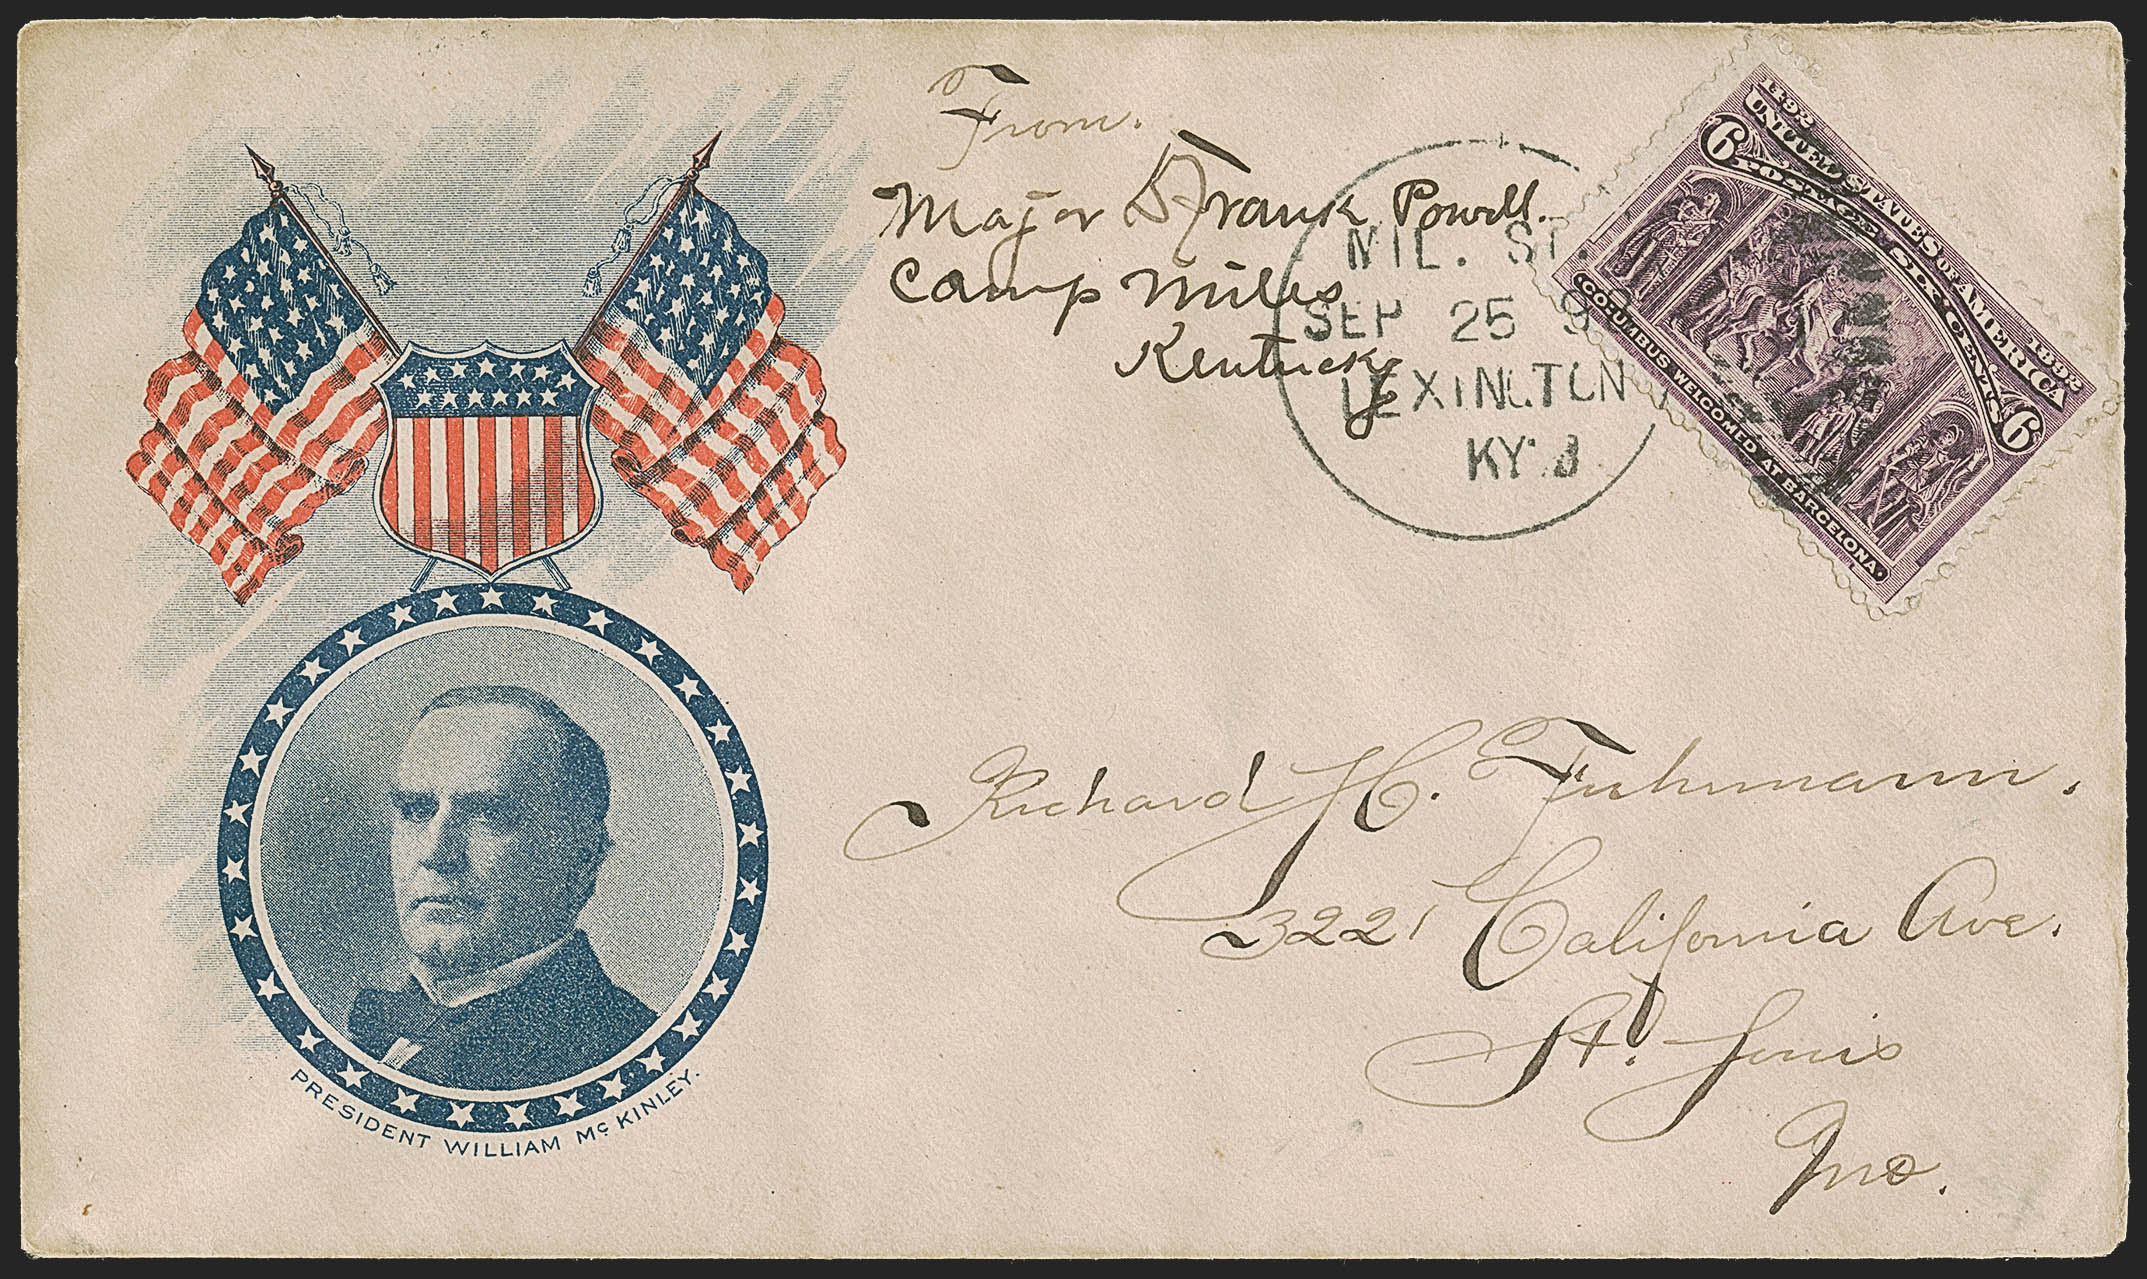 From.
Major D Frank Powell.
Camp Miles
Kentucky
MIL. ST.
SEP 25 9
LEXINGTON
KY.
1492 1892
UNITED STATES OF AMERICA
6 POSTAGE SIX CENTS 6
COLUMBUS WELCOMED AT BARCELONA.
Richard H. Fuhrmann.
3221 California Ave.
St. Louis
Mo.
PRESIDENT WILLIAM McKINLEY.